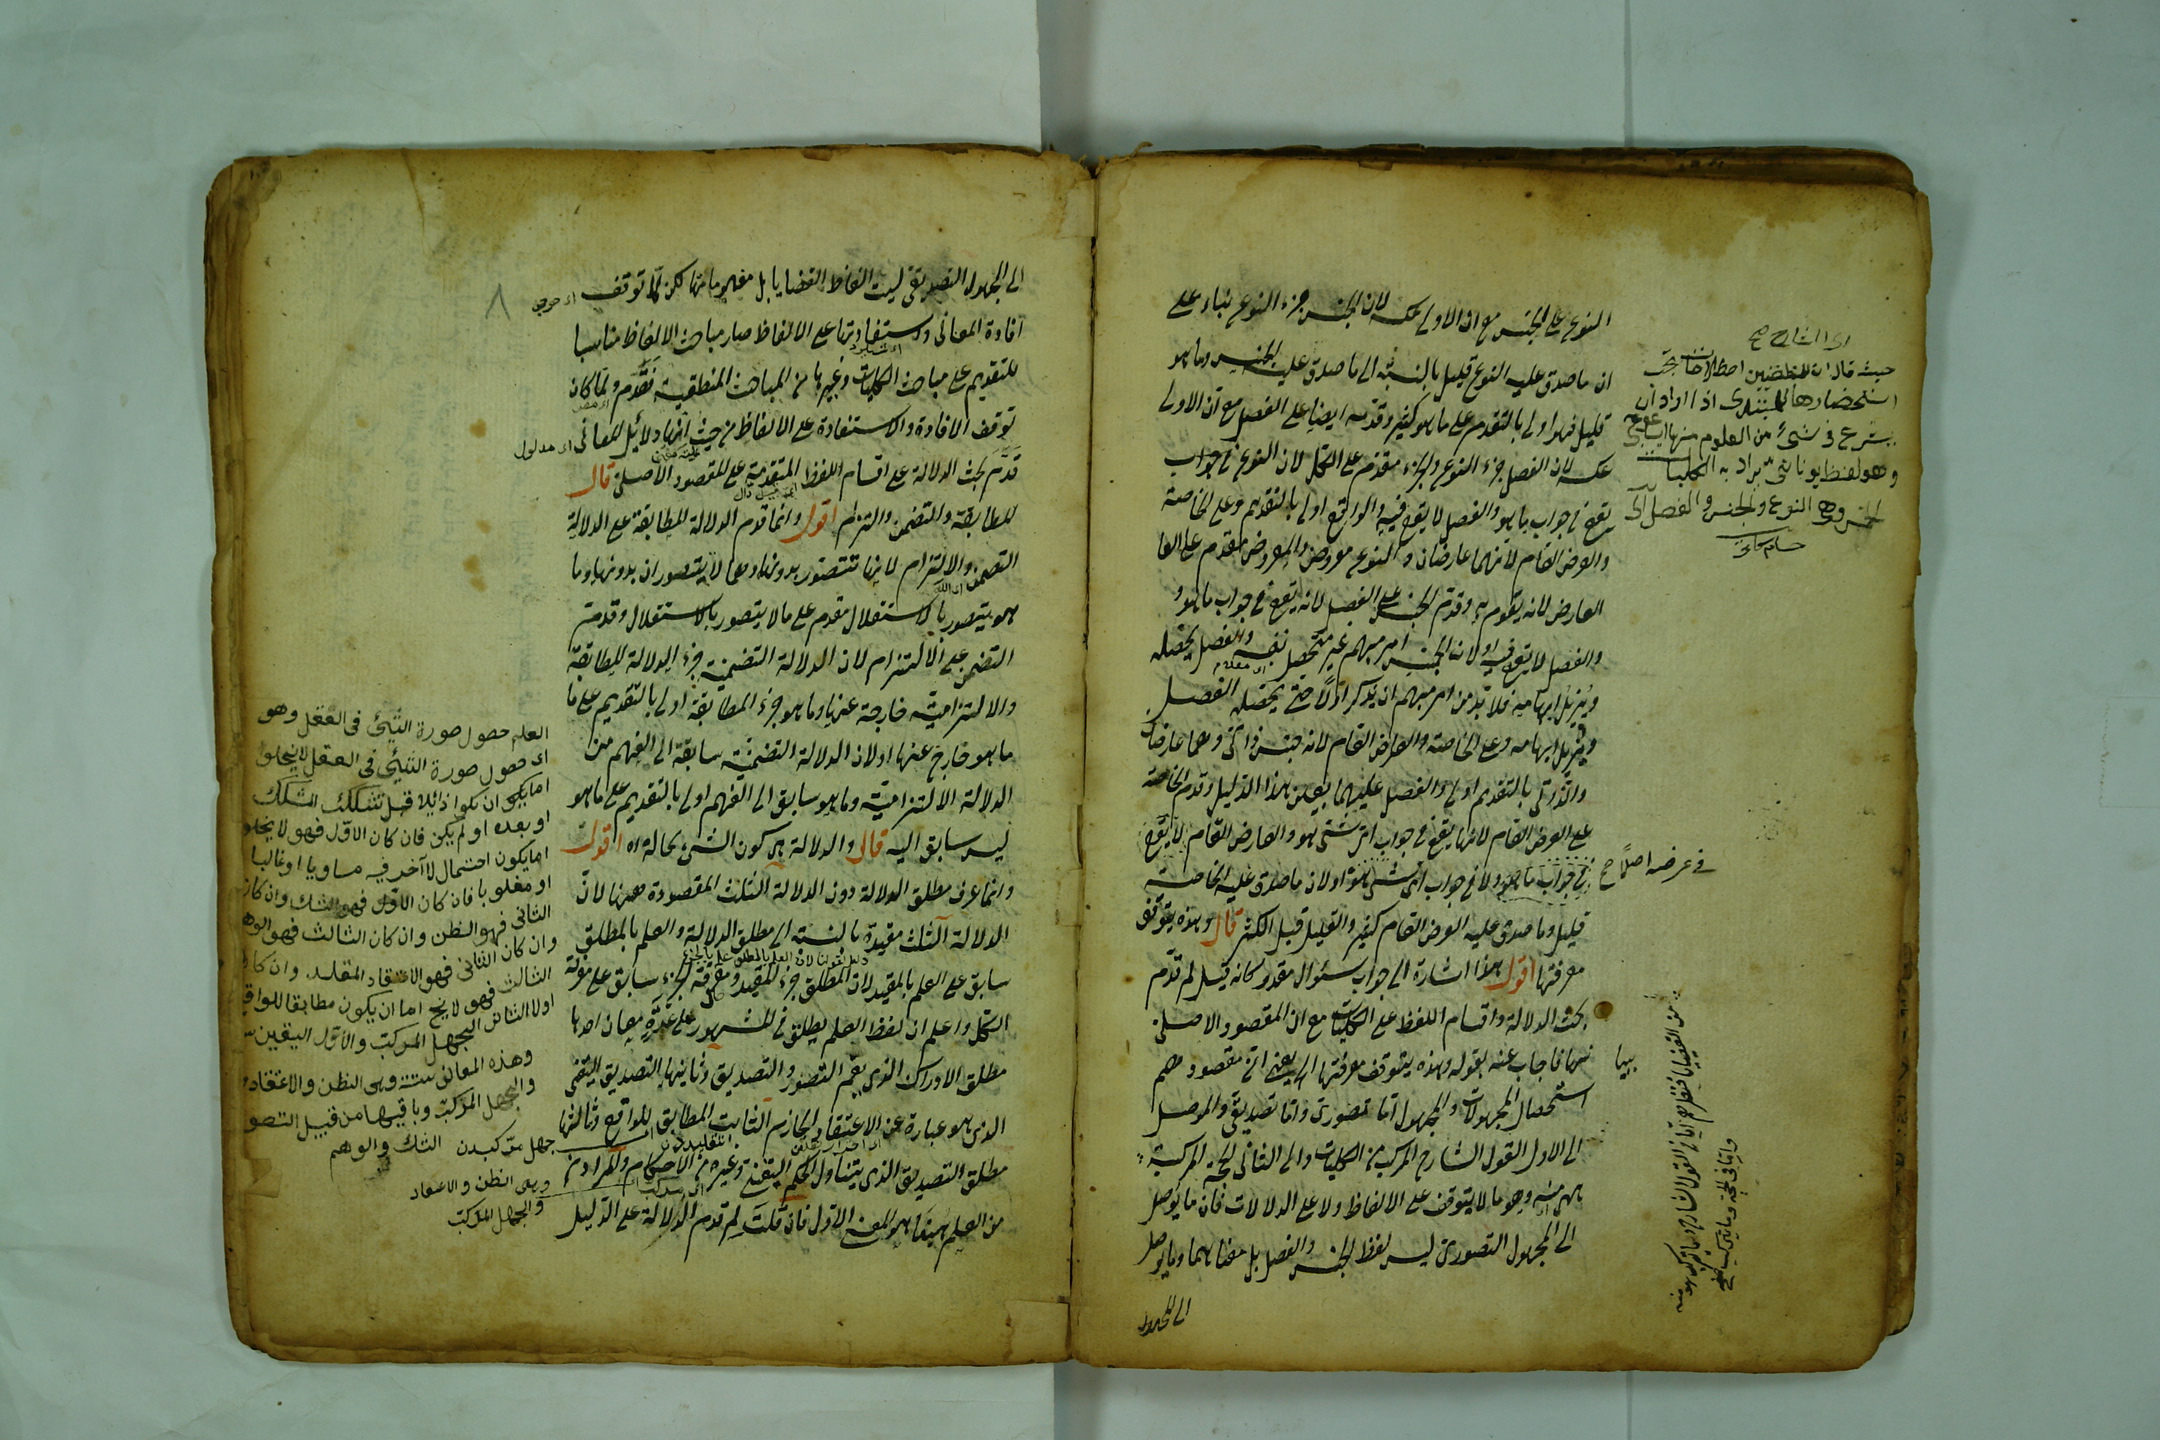 النوع على الجنس مع ان الاولى عكسه لان الجنس جزء النوع بناء على
ان ما صدق عليه النوع قليل بالنسبة الى ما صدق عليه الجنس وما هو
قليل فهو اولى بالتقدم على ما هو كثير وقدمه ايضا على الفصل مع ان الاولى
عكسه لان الفصل جزء النوع والجزء مقدم على الكل لان النوع في جواب
يقع في جواب ما هو والفصل لا يقع فيه والواقع اولى بالتقديم وعلى الخاصة
والعرض العام لانهما عارضان والنوع معروض والمعروض مقدم على العا
العارض لانه يقوم به وقدم الجنس على الفصل لانه يقع في جواب ما هو و
والفصل لا يقع فيه او لان الجنس امر مبهم غير متحصل بنفسه والفصل يحصله
ويزيل ابهامه فلا بد من امر مبهم ان يذكر اولا حتى يحصله الفصل
ويزيل ابهامه وعلى الخاصة والعرض العام لانه جنس ذاتى وهما عارضان
والذاتى بالتقديم اولى والفصل عليهما بعين هذا الدليل وقدم الخاصة
على العرض العام لانها يقع في جواب اى شئ هو والعارض العام لا يقع
في جواب ما هو ولا في جواب اى شئ هو او لان ما صدق عليه الخاصة
قليل وما صدق عليه العرض العام كثير والقليل قبل الكثير قال وهذه يتوقف
معرفتها اقول هذا اشارة الى جواب سئوال مقدر كانه قيل لم قدم
بحث الدلالة واقسام اللفظ على الكليات مع ان المقصود الاصلى
فاجاب عنه بقوله وهذه يتوقف معرفتها الى يعنى ان مقصودهم
استحصال المجهولات والمجهول اما تصورى واما تصديقى والموصل
الى الاول القول الشارح المركب من الكليات والى الثانى الحجة المركبة
وهو ما لا يتوقف على الالفاظ ولا على الدلالات فان ما يوصل
الى المجهول التصورى ليس لفظ الجنس والفصل بل معناهما وما يوصل
الى المجهول
حيث قال ان للمنطقيين اصطلاحات يجب
استحضارها للمبتدى اذا اراد ان
يشرع في شئ من العلوم منها ايساغوجى
وهو لفظ يونانى يراد به الكليات
الخمس وهى النوع والجنس والفصل الى
في عرضه اصلا صح
الى المجهول التصديقى ليست الفاظ القضايا بل مفهوماتها لكن لما توقف
افادة المعانى واستفادتها على الالفاظ صار مباحث الالفاظ مناسبا
للتقديم على مباحث الكليات وغيرها من المباحث المنطقية فقدم ولما كان
توقف الافادة والاستفادة على الالفاظ من حيث انها دلائل المعانى
قدم بحث الدلالة على اقسام اللفظ المتقدمة على المقصود الاصلى قال
للمطابقة والتضمن والتزام اقول وانما قدم الدلالة المطابقة على الدلالة
التضمن والالتزام لانها تتصور بدونهما وهما لا يتصوران بدونها وما
هو يتصور بالاستقلال مقدم على ما لا يتصور بالاستقلال وقدمت
التضمن على الالتزام لان الدلالة التضمنية جزء الدلالة المطابقة
والالتزامية خارجة عنها وما هو جزء المطابقة اولى بالتقديم على ما
ما هو خارج عنها او لان الدلالة التضمنية سابقة الى الفهم من
الدلالة الالتزامية وما هو سابق الى الفهم اولى بالتقديم على ما هو
ليس سابق اليه قال والدلالة هى كون الشئ بحالة اه اقول
وانما عرف مطلق الدلالة دون الدلالة الثلث المقصودة ههنا لان
الدلالة الثلث مقيدة بالنسبة الى مطلق الدلالة والعلم بالمطلق
سابق على العلم بالمقيد لان المطلق جزء المقيد ومعرفة الجزء سابق على معرفة
الكل واعلم ان لفظ العلم يطلق في المشهور على عدة معان احدها
مطلق الادراك الذى يعم التصور والتصديق وثانيها التصديق اليقينى
الذى هو عبارة عن الاعتقاد الجازم الثابت المطابق للواقع وثالثها
مطلق التصديق الذى يتناول الحكم اليقينى وغيره من الاحكام والمراد
من العلم ههنا هو المعنى الاول فان قلت لم قدم الدلالة على الدليل
اى مدلول
٨
العلم حصول صورة الشئ في العقل وهو
اى حصول صورة الشئ في العقل لا يخلوا
اما يكون ان يكون زائلا قبل تشكك المشكك
او بعده او لم يكن فان كان الاول فهو لا يخلو
اما يكون احتمال لآخر فيه مساويا او غالبا
او مغلوبا فان كان الاول فهو الشك وان كان
الثانى فهو الظن وان كان الثالث فهو الوهم
وان كان الثانى فهو الاعتقاد المقلد وان كان
الثالث فهو لا يخ اما ان يكون مطابقا للواقع
اولا الثانى الجهل المركب والاول اليقين
وهذه المعانى ستة وهى الظن والاعتقاد
والجهل المركب وباقيها من قبيل التصور
الشك والوهم
وهى الظن والاعتقاد
والجهل المركب